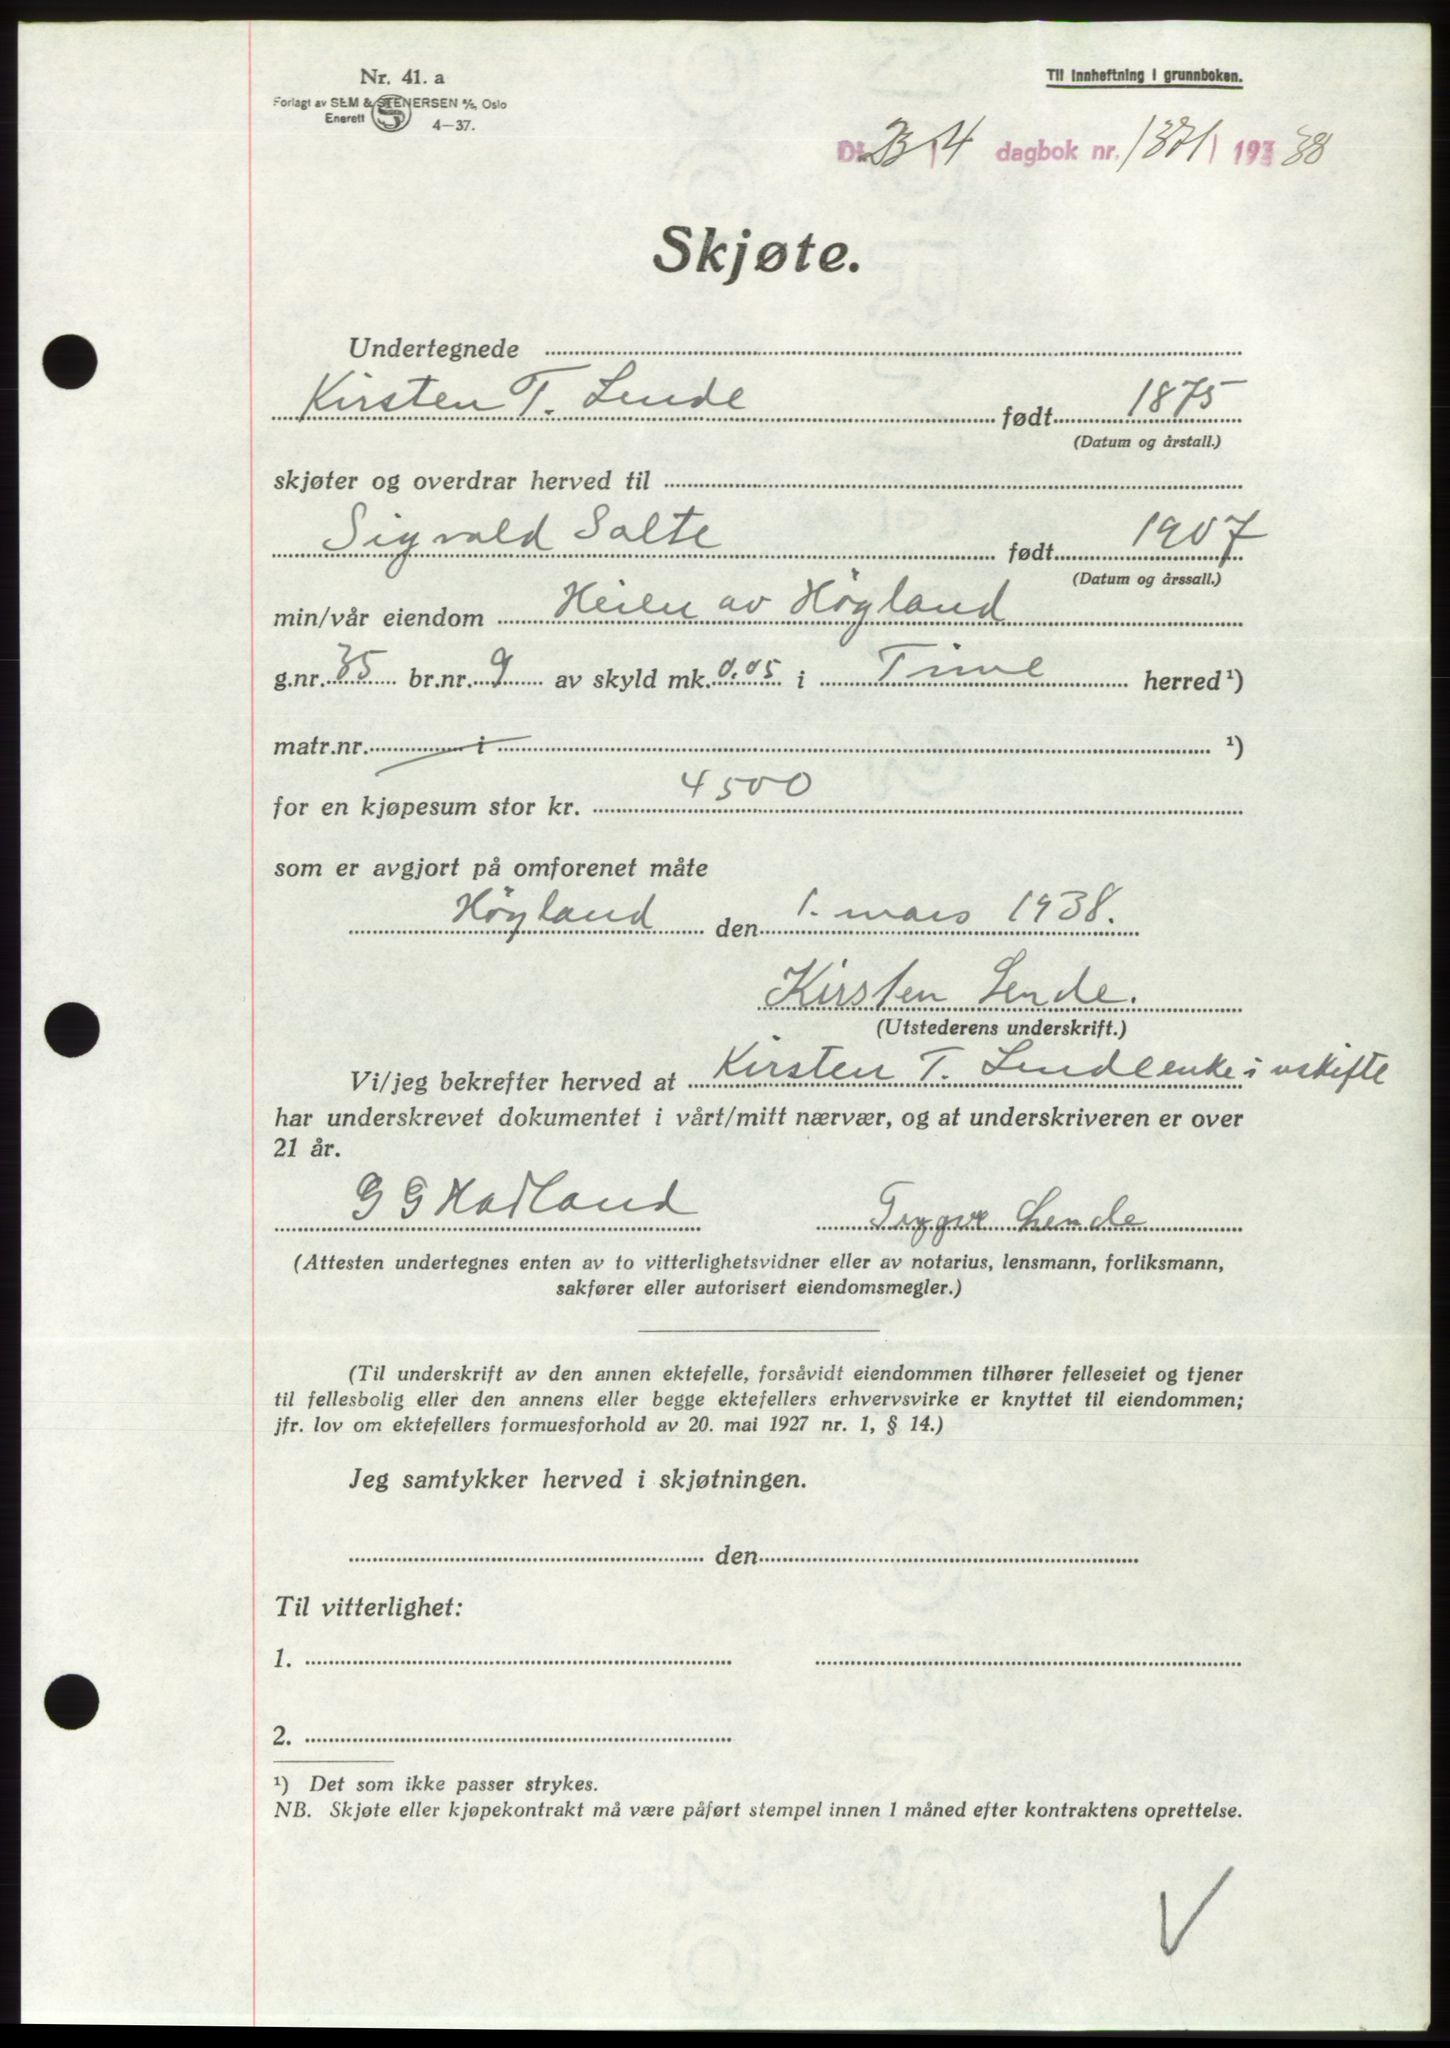 Nr. 41. a
Forlagt av SEM & STENERSEN A/S, Oslo
Enerett 4—37.
Til innheftning i grunnboken.
23/4 dagbok nr. 1371 1938
Skjøte.
Undertegnede
Kirsten T. Lende født 1875
(Datum og årstall.)
skjøter og overdrar herved til
Sigvald Salte født 1907
(Datum og årssall.)
min/vår eiendom Heien av Höyland
g.nr. 35 br.nr. 9 av skyld mk. 0.05 i Time herred ¹)
matr.nr. i ¹)
for en kjøpesum stor kr. 4500
som er avgjort på omforenet måte
Höyland den 1. mars 1938.
Kirsten Lende.
(Utstederens underskrift.)
Vi/jeg bekrefter herved at Kirsten T. Lende enke i uskifte
har underskrevet dokumentet i vårt/mitt nærvær, og at underskriveren er over
21 år.
G G Hadland Trygve Lende
(Attesten undertegnes enten av to vitterlighetsvidner eller av notarius, lensmann, forliksmann,
sakfører eller autorisert eiendomsmegler.)
(Til underskrift av den annen ektefelle, forsåvidt eiendommen tilhører felleseiet og tjener
til fellesbolig eller den annens eller begge ektefellers erhvervsvirke er knyttet til eiendommen;
jfr. lov om ektefellers formuesforhold av 20. mai 1927 nr. 1, § 14.)
Jeg samtykker herved i skjøtningen.
den
Til vitterlighet:
1.
2.
¹) Det som ikke passer strykes.
NB. Skjøte eller kjøpekontrakt må være påført stempel innen 1 måned efter kontraktens oprettelse.